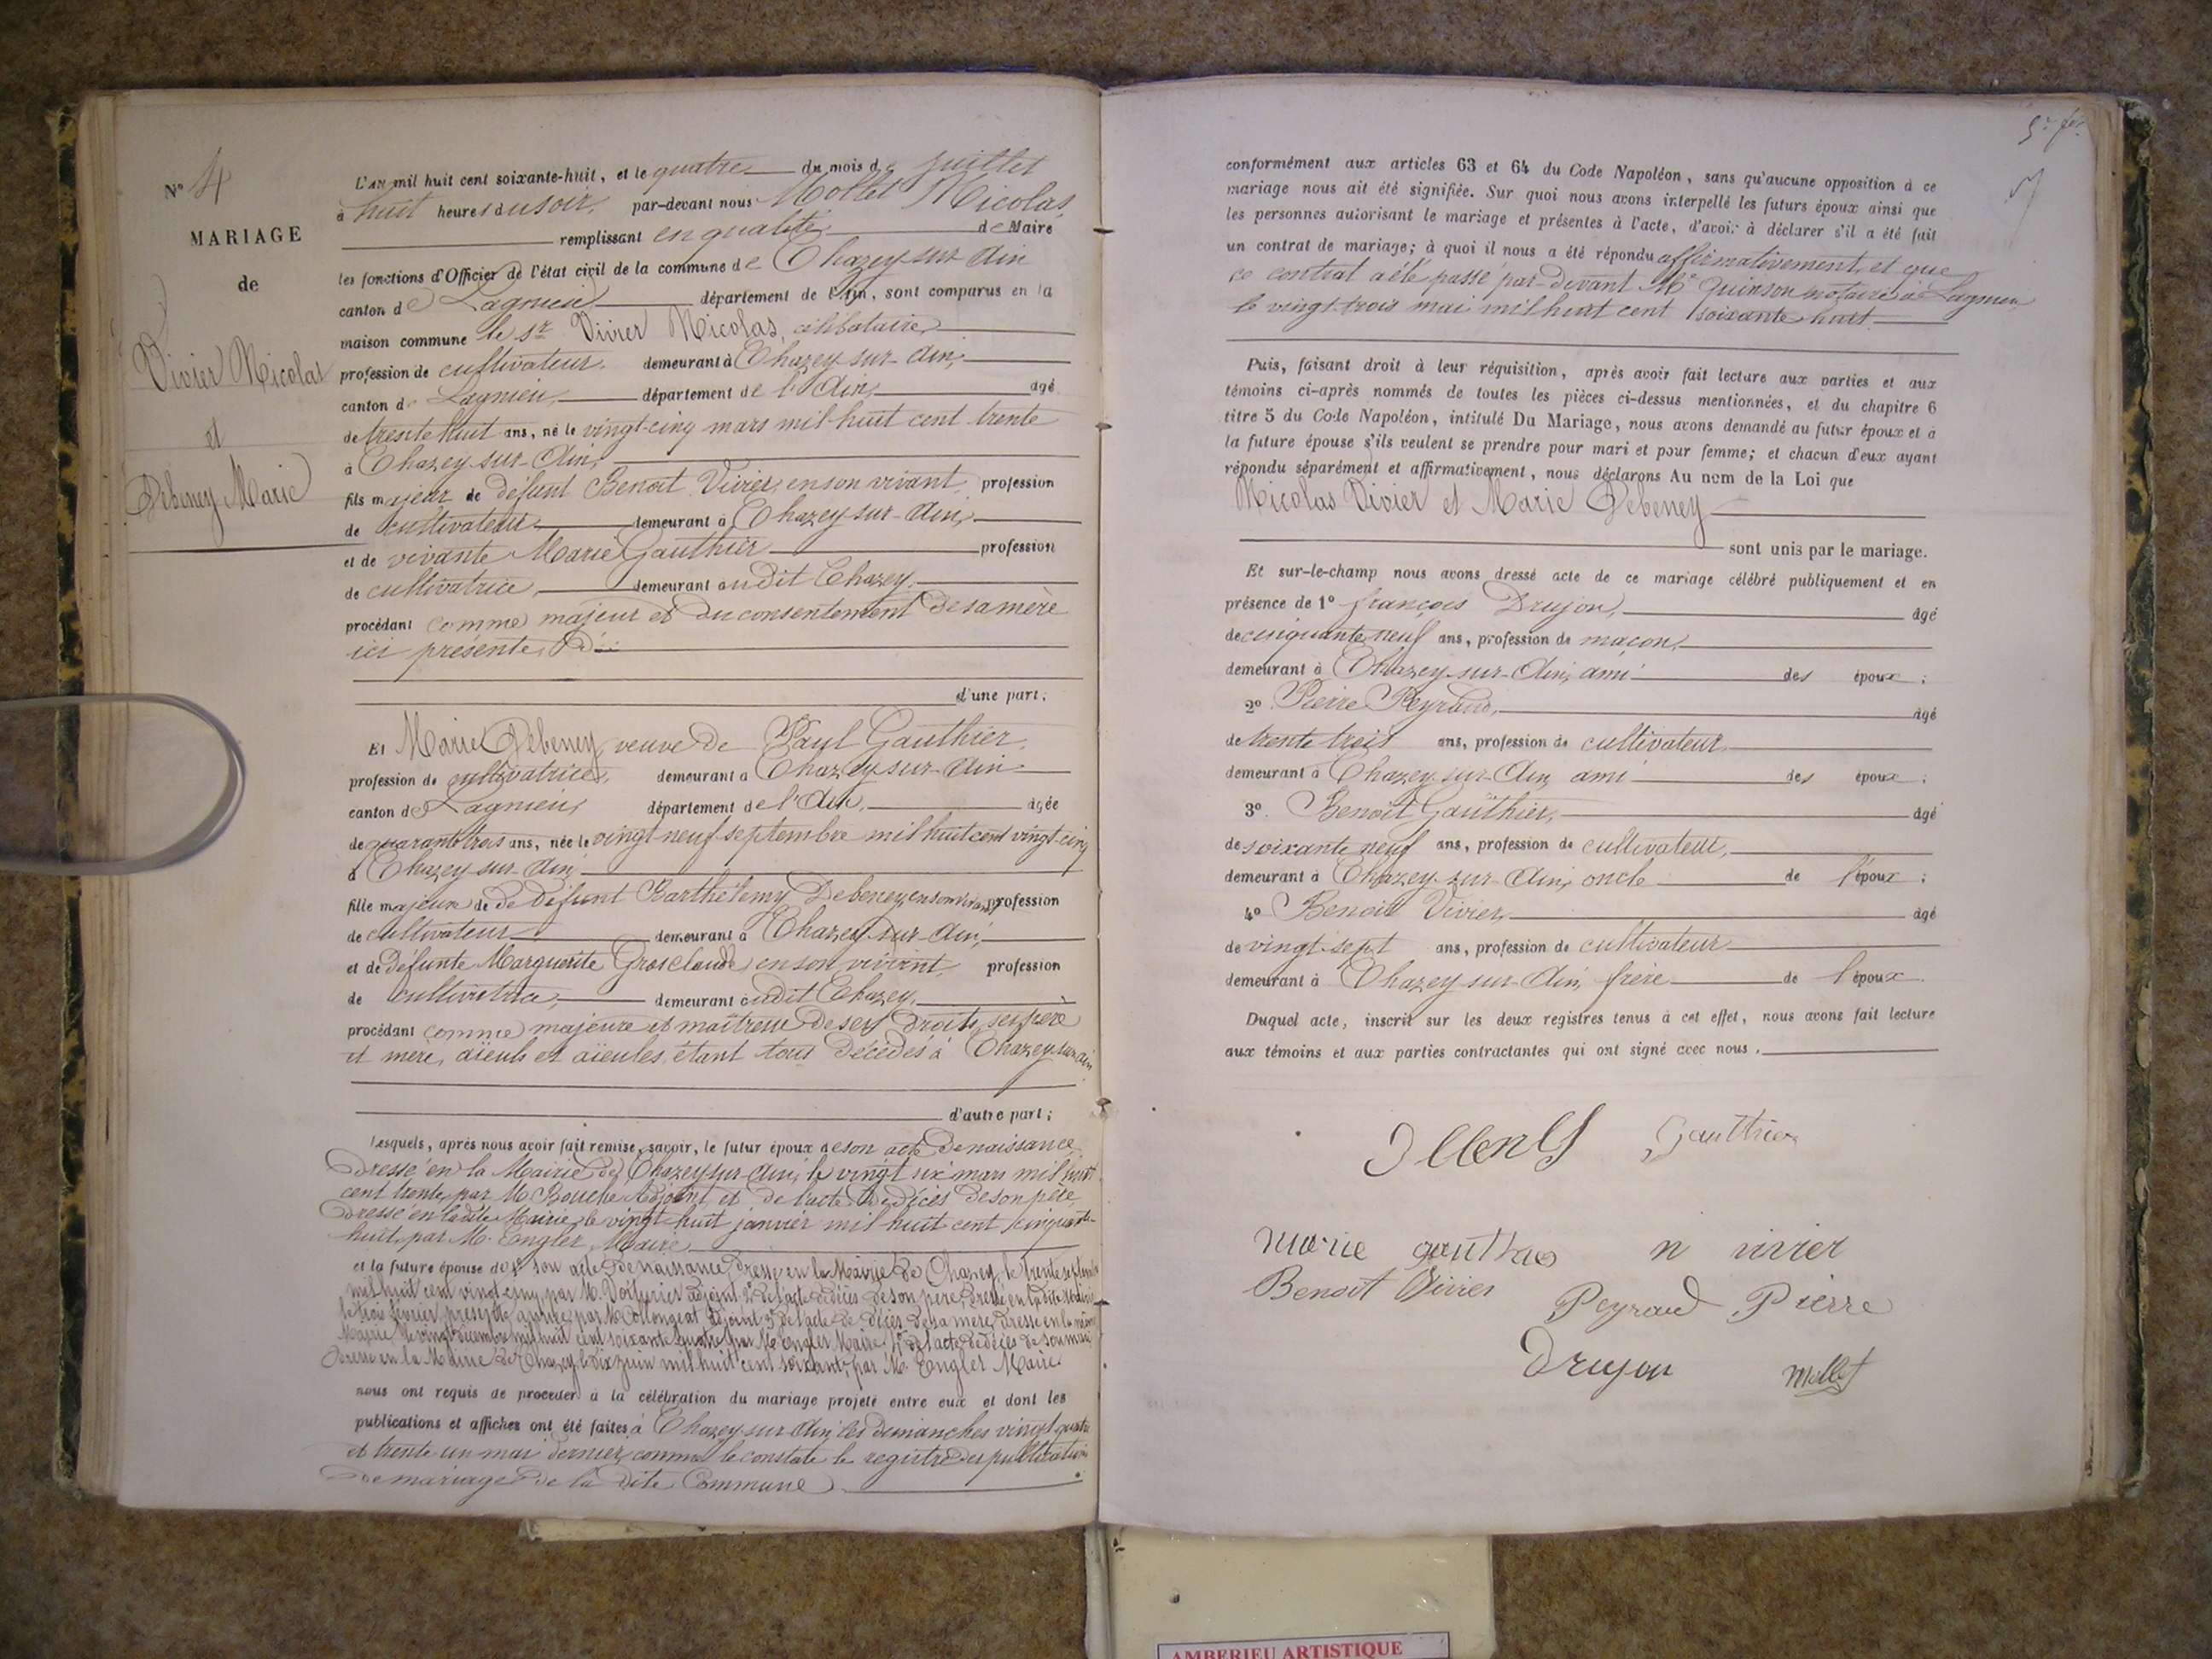 N° 4
MARIAGE
de
Vivier Nicolas
et
Debeney Marie
L'an mil huit cent soixante-huit, et le quatre du mois de juillet
à huit heures du soir, par-devant nous Mollet Nicolas
remplissant en qualité de Maire
les fonctions d'Officier de l'état civil de la commune de Chazey-sur-Ain
canton de Lagnieu département de l'Ain, sont comparus en la
maison commune le sr Vivier Nicolas, célibataire
profession de cultivateur, demeurant à Chazey-sur-Ain,
canton de Lagnieu, département de l'Ain, âgé
de trente huit ans, né le vingt-cinq mars mil huit cent trente
à Chazey-sur-Ain,
fils majeur de défunt Benoit Vivier, en son vivant, profession
de cultivateur demeurant à Chazey-sur-Ain,
et de vivante Marie Gauthier profession
de cultivatrice, demeurant audit Chazey,
procédant comme majeur et du consentement de sa mère
ici présente,
d'une part;
Et Marie Debeney, veuve de Paul Gauthier,
profession de cultivatrice, demeurant à Chazey-sur-Ain
canton de Lagnieu, département de l'Ain, âgée
de quarante trois ans, née le vingt neuf septembre mil huit cent vingt-cinq
à Chazey-sur-Ain,
fille majeure de de défunt Barthélemy Debeney, en son vivant, profession
de cultivateur demeurant à Chazey-sur-Ain,
et de défunte Marguerite Grosclaude, en son vivant, profession
de cultivatrice, demeurant audit Chazey,
procédant comme majeure et maîtresse de ses droits, ses père
et mère, aïeuls et aïeules, étant tous décédés à Chazey-sur-Ain
d'autre part;
Lesquels, après nous avoir fait remise, savoir, le futur époux de son acte de naissance
dressé en la Mairie de Chazey-sur-Ain, le vingt six mars mil huit
cent trente, par M. Bouche Adjoint et de l'acte de décès de son père,
dressé en ladite Mairie, le vingt-huit janvier mil huit cent cinquante-
huit, par M. Engler, Maire
et la future épouse de 1° son acte de naissance, dressé en la Mairie de Chazey, le trente septembre
mil huit cent vingt-cinq, par M. Voiturier adjoint, 2° de l'acte de décès de son père, dressé en ladite Mairie
le trois février, présente année, par M. Collongeat adjoint, 3° de l'acte de décès de sa mère, dressé en la même
Mairie le vingt décembre mil huit cent soixante quatre, par M. Engler Maire, 4° de l'acte de décès de son mari
dressé en la Mairie de Chazey le dix juin mil huit cent soixante, par M. Engler Maire
nous ont requis de procéder à la célébration du mariage projeté entre eux et dont les
publications et affiches ont été faites à Chazey-sur-Ain, les dimanches vingt quatre
et trente un mai dernier, comme le constate le registre des publications
de mariages de la dite Commune
conformément aux articles 63 et 64 du Code Napoléon, sans qu'aucune opposition à ce
mariage nous ait été signifiée. Sur quoi nous avons interpellé les futurs époux ainsi que
les personnes autorisant le mariage et présentes à l'acte, d'avoir à déclarer s'il a été fait
un contrat de mariage; à quoi il nous a été répondu affirmativement, et que
ce contrat a été passé par-devant Me Quinson notaire à Lagnieu
le vingt trois mai mil huit cent soixante huit
Puis, faisant droit à leur réquisition, après avoir fait lecture aux parties et aux
témoins ci-après nommés de toutes les pièces ci-dessus mentionnées, et du chapitre 6
titre 5 du Code Napoléon, intitulé Du Mariage, nous avons demandé au futur époux et à
la future épouse s'ils veulent se prendre pour mari et pour femme; et chacun d'eux ayant
répondu séparément et affirmativement, nous déclarons Au nom de la Loi que
Nicolas Vivier et Marie Debeney
sont unis par le mariage.
Et sur-le-champ nous avons dressé acte de ce mariage célébré publiquement et en
présence de 1° François Drujon, âgé
de cinquante neuf ans, profession de maçon,
demeurant à Chazey-sur-Ain, ami des époux;
2° Pierre Peyraud, âgé
de trente trois ans, profession de cultivateur,
demeurant à Chazey-sur-Ain, ami des époux;
3° Benoit Gauthier, âgé
de soixante neuf ans, profession de cultivateur,
demeurant à Chazey-sur-Ain, oncle de l'époux;
4° Benoit Vivier, âgé
de vingt-sept ans, profession de cultivateur
demeurant à Chazey-sur-Ain, frère de l'époux
Duquel acte, inscrit sur les deux registres tenus à cet effet, nous avons fait lecture
aux témoins et aux parties contractantes qui ont signé avec nous.
Gauthier
Marie n vivier
Benoit Vivier
Peyraud Pierre
Drujon Mollet
AMBERIEU ARTISTIQUE